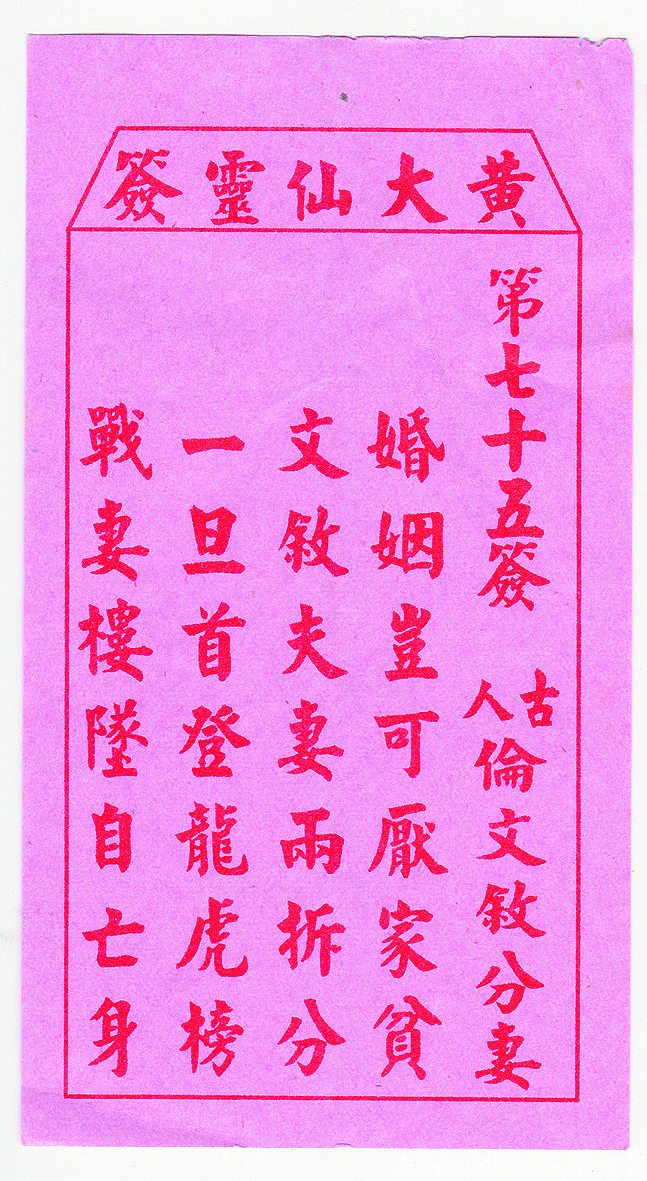 黃大仙靈簽
第七十五簽 古人倫文敘分妻
婚姻豈可厭家貧
文敘夫妻兩拆分
一旦首登龍虎榜
戰妻樓墜自亡身